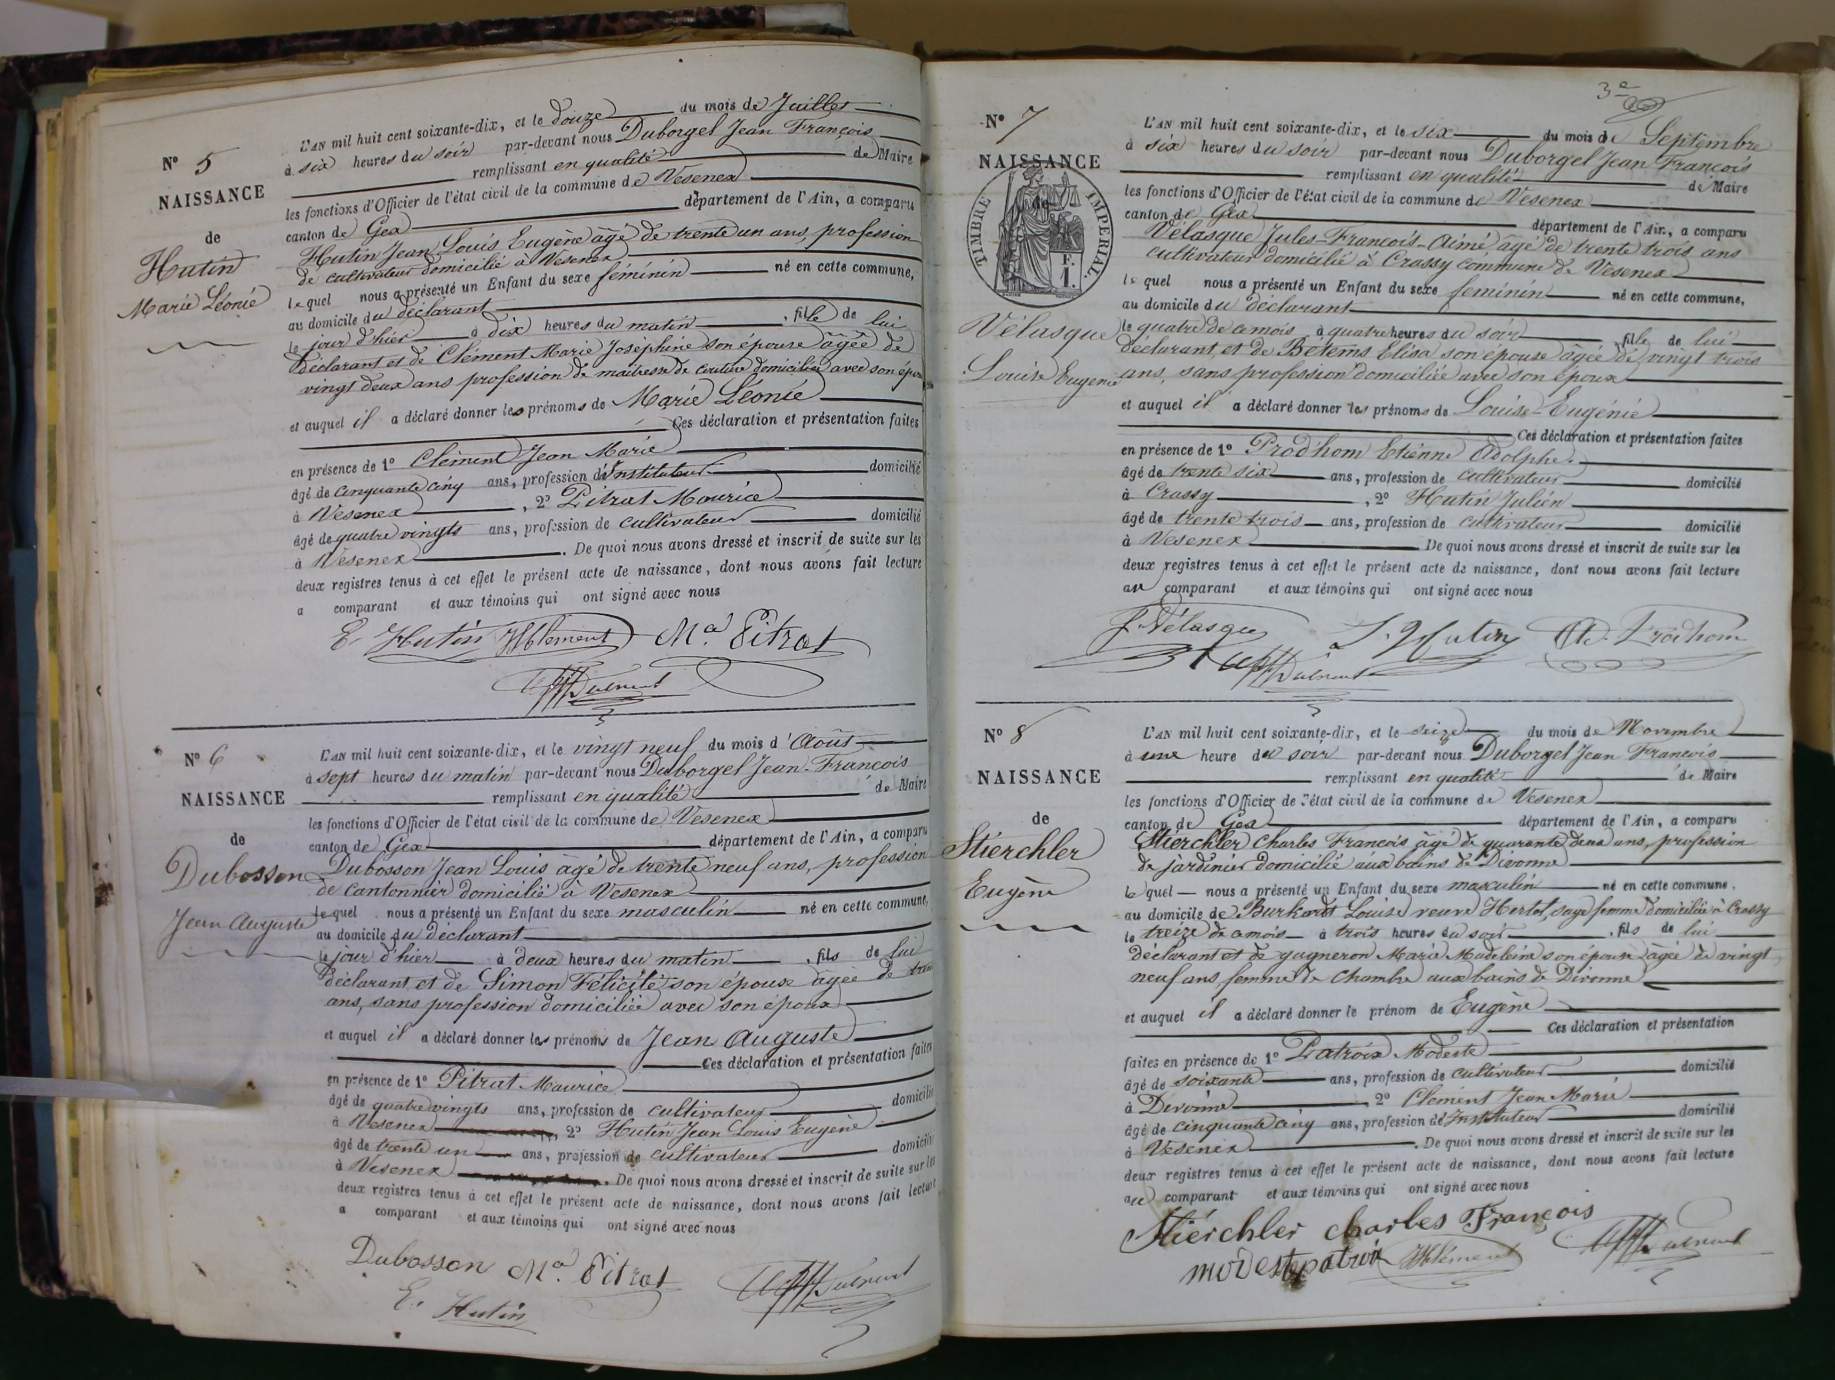 N° 5
NAISSANCE
de
Hutin
Marie Léonie
L'AN mil huit cent soixante-dix, et le douze du mois de Juillet
à six heures du soir par-devant nous Duborgel Jean François
remplissant en qualité de Maire
les fonctions d'Officier de l'état civil de la commune de Vesenex
canton de Gex département de l'Ain, a comparu
Hutin Jean Louis Eugène âgé de trente un ans, profession
de cultivateur domicilié à Vesenex
lequel nous a présenté un Enfant du sexe féminin né en cette commune,
au domicile du déclarant
le jour d'hier à dix heures du matin, fille de lui
déclarant et de Clément Marie Joséphine son épouse âgée de
vingt deux ans profession de maitresse de couture domiciliée avec son époux
et auquel il a déclaré donner les prénoms de Marie Léonie
Ces déclaration et présentation faites
en présence de 1° Clément Jean Marie
âgé de cinquante cinq ans, profession d'Instituteur domicilié
à Vesenex, 2° Pitrat Maurice
âgé de quatre vingts ans, profession de cultivateur domicilié
à Vesenex. De quoi nous avons dressé et inscrit de suite sur les
deux registres tenus à cet effet le présent acte de naissance, dont nous avons fait lecture
a comparant et aux témoins qui ont signé avec nous
E. Hutin JMClément Mce Pitrat
N° 6
NAISSANCE
de
Dubosson
Jean Auguste
L'AN mil huit cent soixante-dix, et le vingt neuf du mois d'Août
à sept heures du matin par-devant nous Duborgel Jean-François
remplissant en qualité de Maire
les fonctions d'Officier de l'état civil de la commune de Vesenex
canton de Gex département de l'Ain, a comparu
Dubosson Jean Louis âgé de trente neuf ans, profession
de cantonnier domicilié à Vesenex
lequel nous a présenté un Enfant du sexe masculin né en cette commune,
au domicile du déclarant
le jour d'hier à deux heures du matin, fils de lui
déclarant et de Simon Félicité son épouse âgée de
ans, sans profession domiciliée avec son époux
et auquel il a déclaré donner les prénoms de Jean Auguste
Ces déclaration et présentation faites
en présence de 1° Pitrat Maurice
âgé de quatre vingts ans, profession de cultivateur domicilié
à Vesenex, 2° Hutin Jean Louis Eugène
âgé de trente un ans, profession de cultivateur domicilié
à Vesenex. De quoi nous avons dressé et inscrit de suite sur les
deux registres tenus à cet effet le présent acte de naissance, dont nous avons fait lecture
a comparant et aux témoins qui ont signé avec nous
Dubosson Mce Pitrat
E. Hutin
3e
N° 7
NAISSANCE
de
TIMBRE IMPERIAL
F.
1.
Vélasque
Louise Eugénie
L'AN mil huit cent soixante-dix, et le six du mois de Septembre
à six heures du soir par-devant nous Duborgel Jean François
remplissant en qualité de Maire
les fonctions d'Officier de l'état civil de la commune de Vesenex
canton de Gex département de l'Ain, a comparu
Vélasque Jules-François-Aimé âgé de trente trois ans
cultivateur domicilié à Crassy commune de Vesenex
lequel nous a présenté un Enfant du sexe féminin né en cette commune,
au domicile du déclarant
le quatre de ce mois à quatre heures du soir fille de lui
déclarant, et de Betems Elisa son épouse âgée de vingt trois
ans, sans profession domiciliée avec son époux
et auquel il a déclaré donner les prénoms de Louise-Eugénie
Ces déclaration et présentation faites
en présence de 1° Prodhom Etienne Adolphe
âgé de trente six ans, profession de cultivateur domicilié
à Crassy, 2° Hutin Julien
âgé de trente trois ans, profession de cultivateur domicilié
à Vesenex De quoi nous avons dressé et inscrit de suite sur les
deux registres tenus à cet effet le présent acte de naissance, dont nous avons fait lecture
au comparant et aux témoins qui ont signé avec nous
J. Vélasque J. Hutin Ad. Prodhom
N° 8
NAISSANCE
de
Stierchler
Eugène
L'AN mil huit cent soixante-dix, et le seize du mois de Novembre
à une heure du soir par-devant nous Duborgel Jean François
remplissant en qualité de Maire
les fonctions d'Officier de l'état civil de la commune de Vesenex
canton de Gex département de l'Ain, a comparu
Stierchler Charles François âgé de quarante deux ans, profession
de jardinier domicilié aux bains de Divonne
lequel nous a présenté un Enfant du sexe masculin né en cette commune,
au domicile de Burkardt Louise veuve Hertel, sage femme domiciliée à Crassy
le treize de ce mois à trois heures du soir, fils de lui
déclarant et de gugneron Marie Madeleine son épouse âgée de vingt
neuf ans, femme de chambre aux bains de Divonne
et auquel il a déclaré donner le prénom de Eugène
Ces déclaration et présentation
faites en présence de 1° Patroix Modeste
âgé de soixante ans, profession de cultivateur domicilié
à Divonne, 2° Clément Jean Marie
âgé de cinquante cinq ans, profession d'Instituteur domicilié
à Vesenex. De quoi nous avons dressé et inscrit de suite sur les
deux registres tenus à cet effet le présent acte de naissance, dont nous avons fait lecture
au comparant et aux témoins qui ont signé avec nous
Stierchler charles François
modeste patroix JMClément